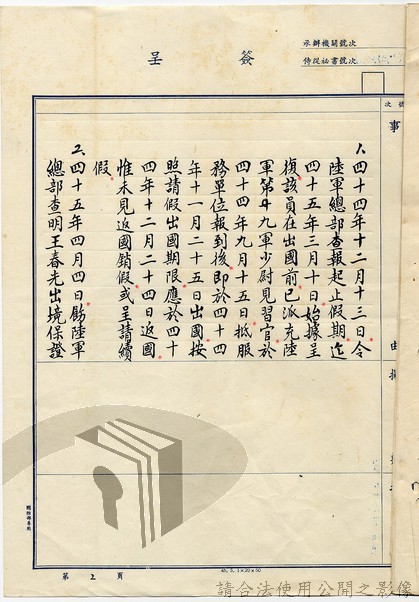 簽呈
承辦機關號次
侍從祕書號次
號次
事
由
1. 四十四年十二月十三日令
陸軍總部查報起止假期迄
四十五年三月十日始據呈
復該員在出國前已派充陸
軍第四九軍少尉見習官於
四十四年九月十五日抵服
務單位報到後即於四十四
年十一月二十五日出國按
照請假出國期限應於四十
四年十二月二十四日返國
惟未見返國銷假或呈請續
假
2. 四十五年四月四日飭陸軍
總部查明王春先出境保證
第 2 頁
請合法使用公開之影像